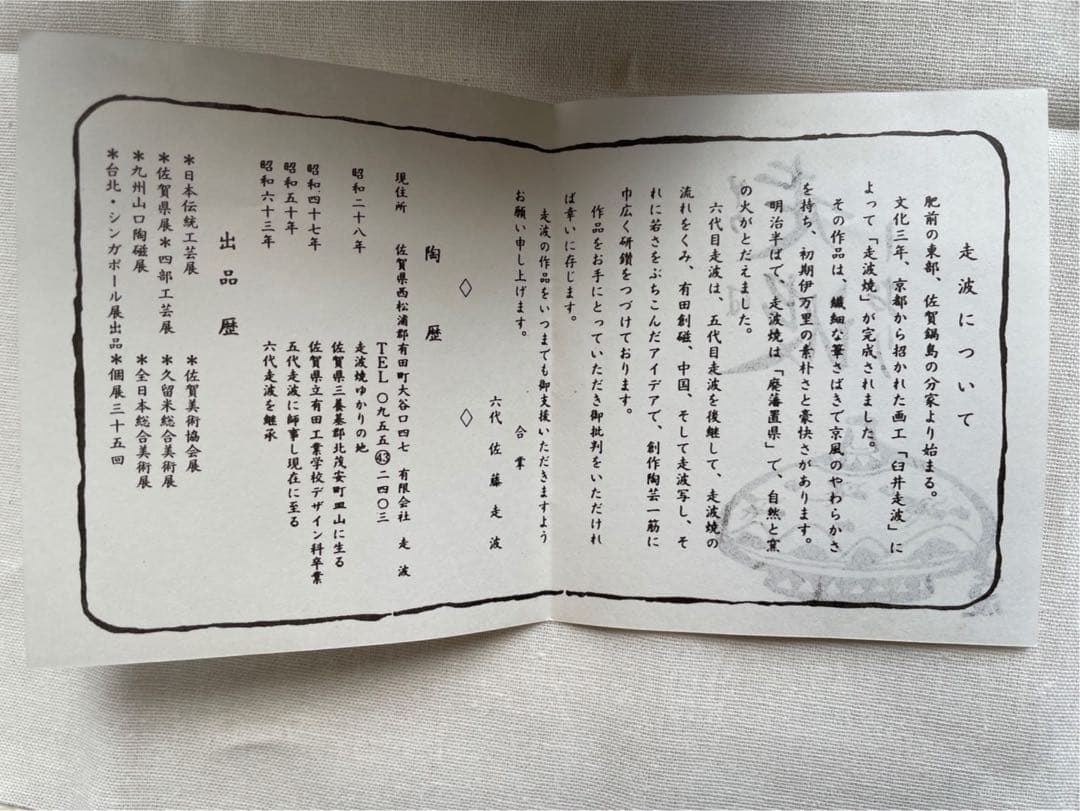 走波について
肥前の東部、佐賀鍋島の分家より始まる。
文化三年、京都から招かれた画工「臼井走波」に
よって「走波焼」が完成されました。
その作品は、繊細な筆さばきで京風のやわらかさ
を持ち、初期伊万里の素朴さと豪快さがあります。
明治半ばで、走波焼は「廃藩置県」で、自然と窯
の火がとだえました。
六代目走波は、五代目走波を後継して、走波焼の
流れをくみ、有田創磁、中国、そして走波写し、そ
れに若さをぶちこんだアイデアで、創作陶芸一筋に
巾広く研鑽をつづけております。
作品をお手にとっていただき御批判をいただけれ
ば幸いに存じます。
走波の作品をいつまでも御支援いただきますよう
お願い申し上げます。
合掌
六代 佐藤走波
◇ ◇
陶歴
現住所 佐賀県西松浦郡有田町大谷口四七 有限会社 走波
TEL〇九五五㊸二四〇三
走波焼ゆかりの地
昭和二十八年 佐賀県三養基郡北茂安町皿山に生る
昭和四十七年 佐賀県立有田工業学校デザイン科卒業
昭和五十年 五代走波に師事し現在に至る
昭和六十三年 六代走波を継承
出品歴
*日本伝統工芸展 *佐賀美術協会展
*佐賀県展*四部工芸展 *久留米総合美術展
*九州山口陶磁展 *全日本総合美術展
*台北・シンガポール展出品*個展三十五回